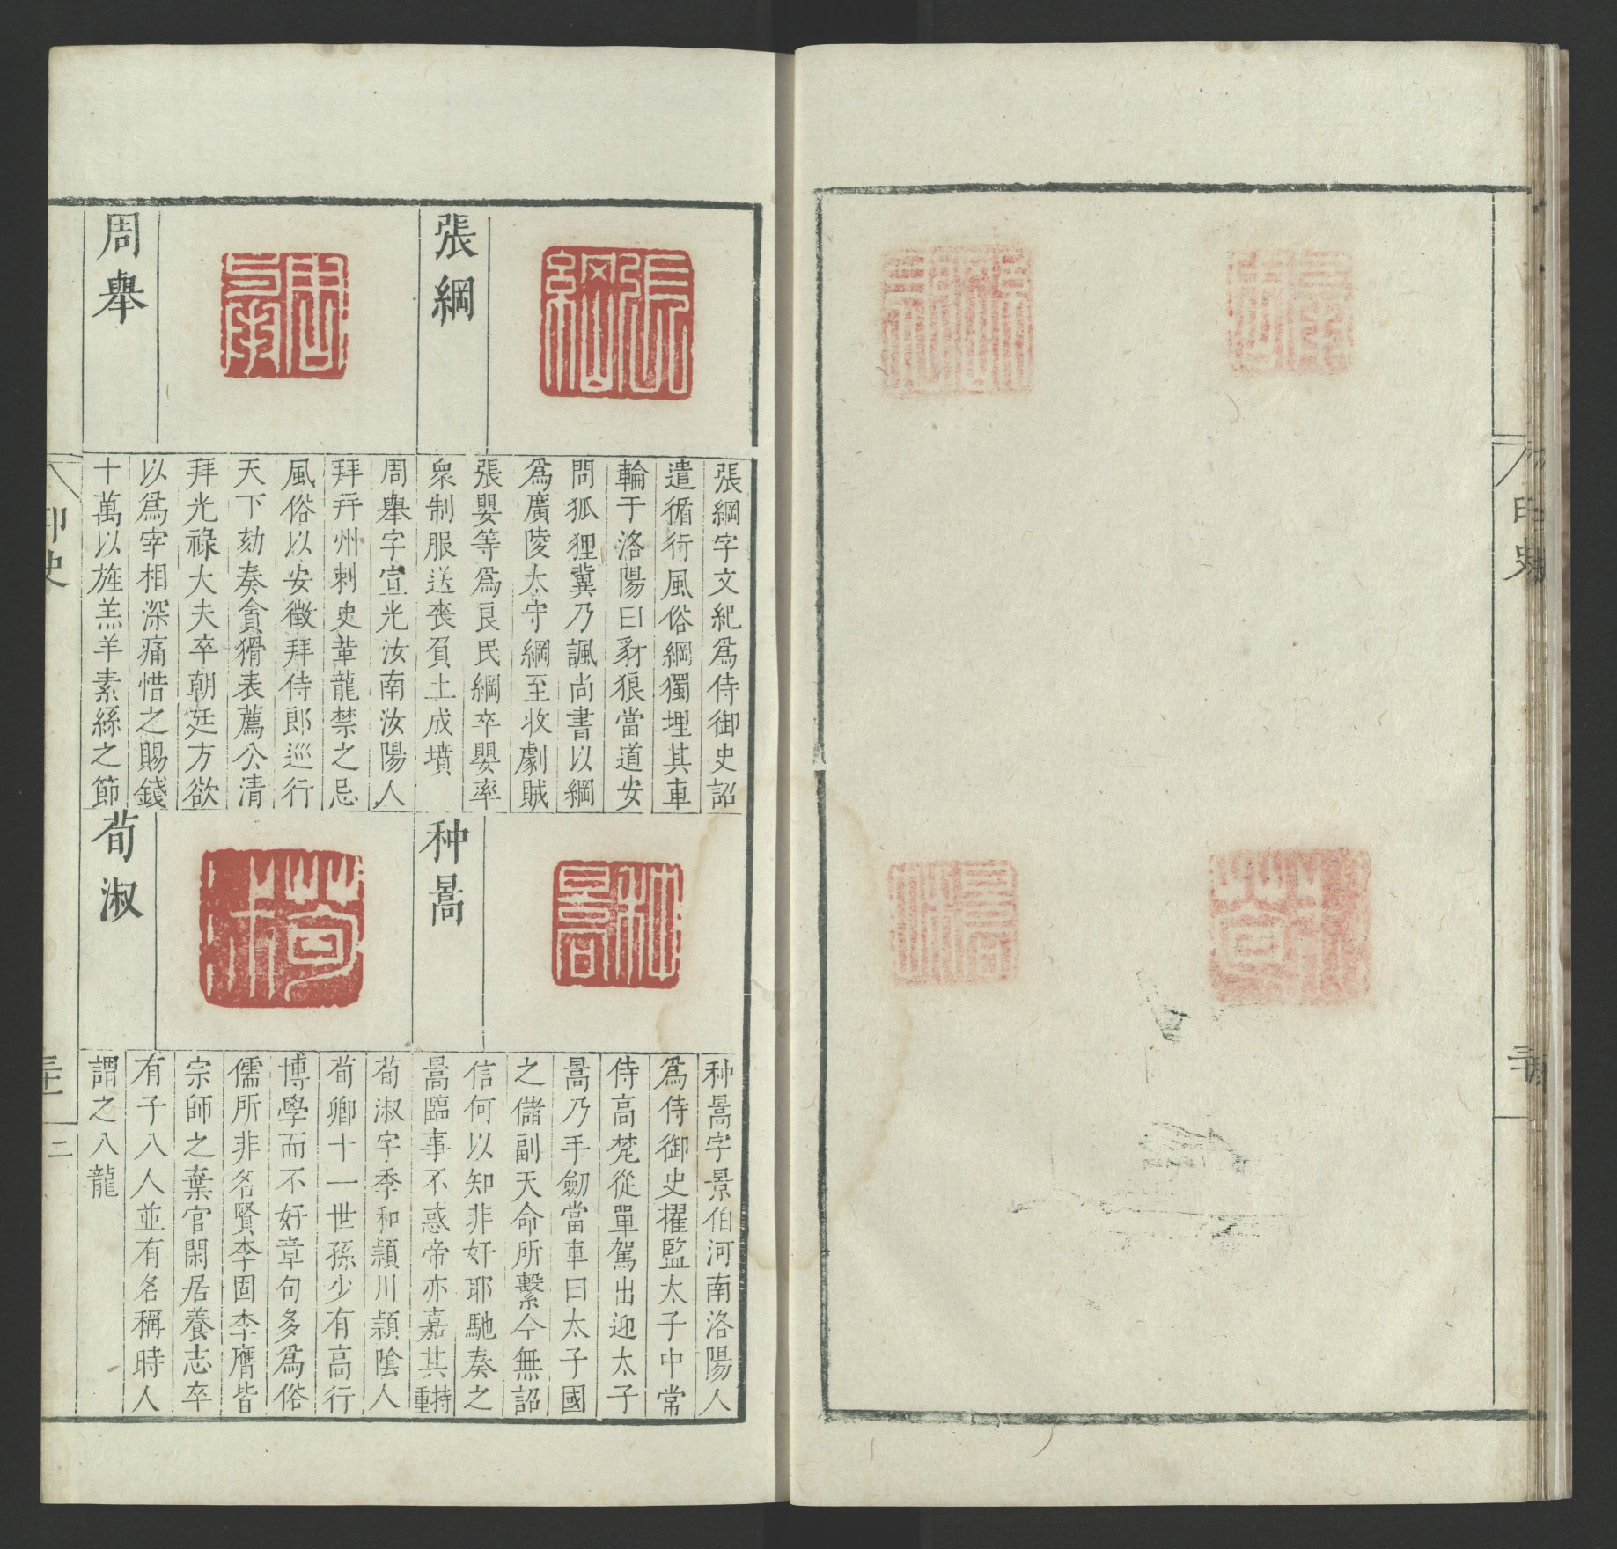 張綱
張綱字文紀爲侍御史詔
遣循行風俗綱獨埋其車
輪于洛陽曰豺狼當道安
問狐狸冀乃諷尚書以綱
爲廣陵太守綱至收劇賊
張嬰等爲良民綱卒嬰率
衆制服送喪負土成墳
周舉
周舉字宣光汝南汝陽人
拜幷州刺史葷龍禁之忌
風俗以安徵拜侍郎巡行
天下劾奏貪猾表薦公清
拜光祿大夫卒朝廷方欲
以爲宰相深痛惜之賜錢
十萬以旌羔羊素絲之節
种暠
种暠字景伯河南洛陽人
爲侍御史擢監太子中常
侍高梵從單駕出迎太子
暠乃手劒當車曰太子國
之儲副天命所繫今無詔
信何以知非奸耶馳奏之
暠臨事不惑帝亦嘉其持重
荀淑
荀淑字季和潁川潁陰人
荀卿十一世孫少有高行
博學而不好章句多爲俗
儒所非名賢李固李膺皆
宗師之葉官閑居養志卒
有子八人並有名稱時人
謂之八龍
印史
二
印史